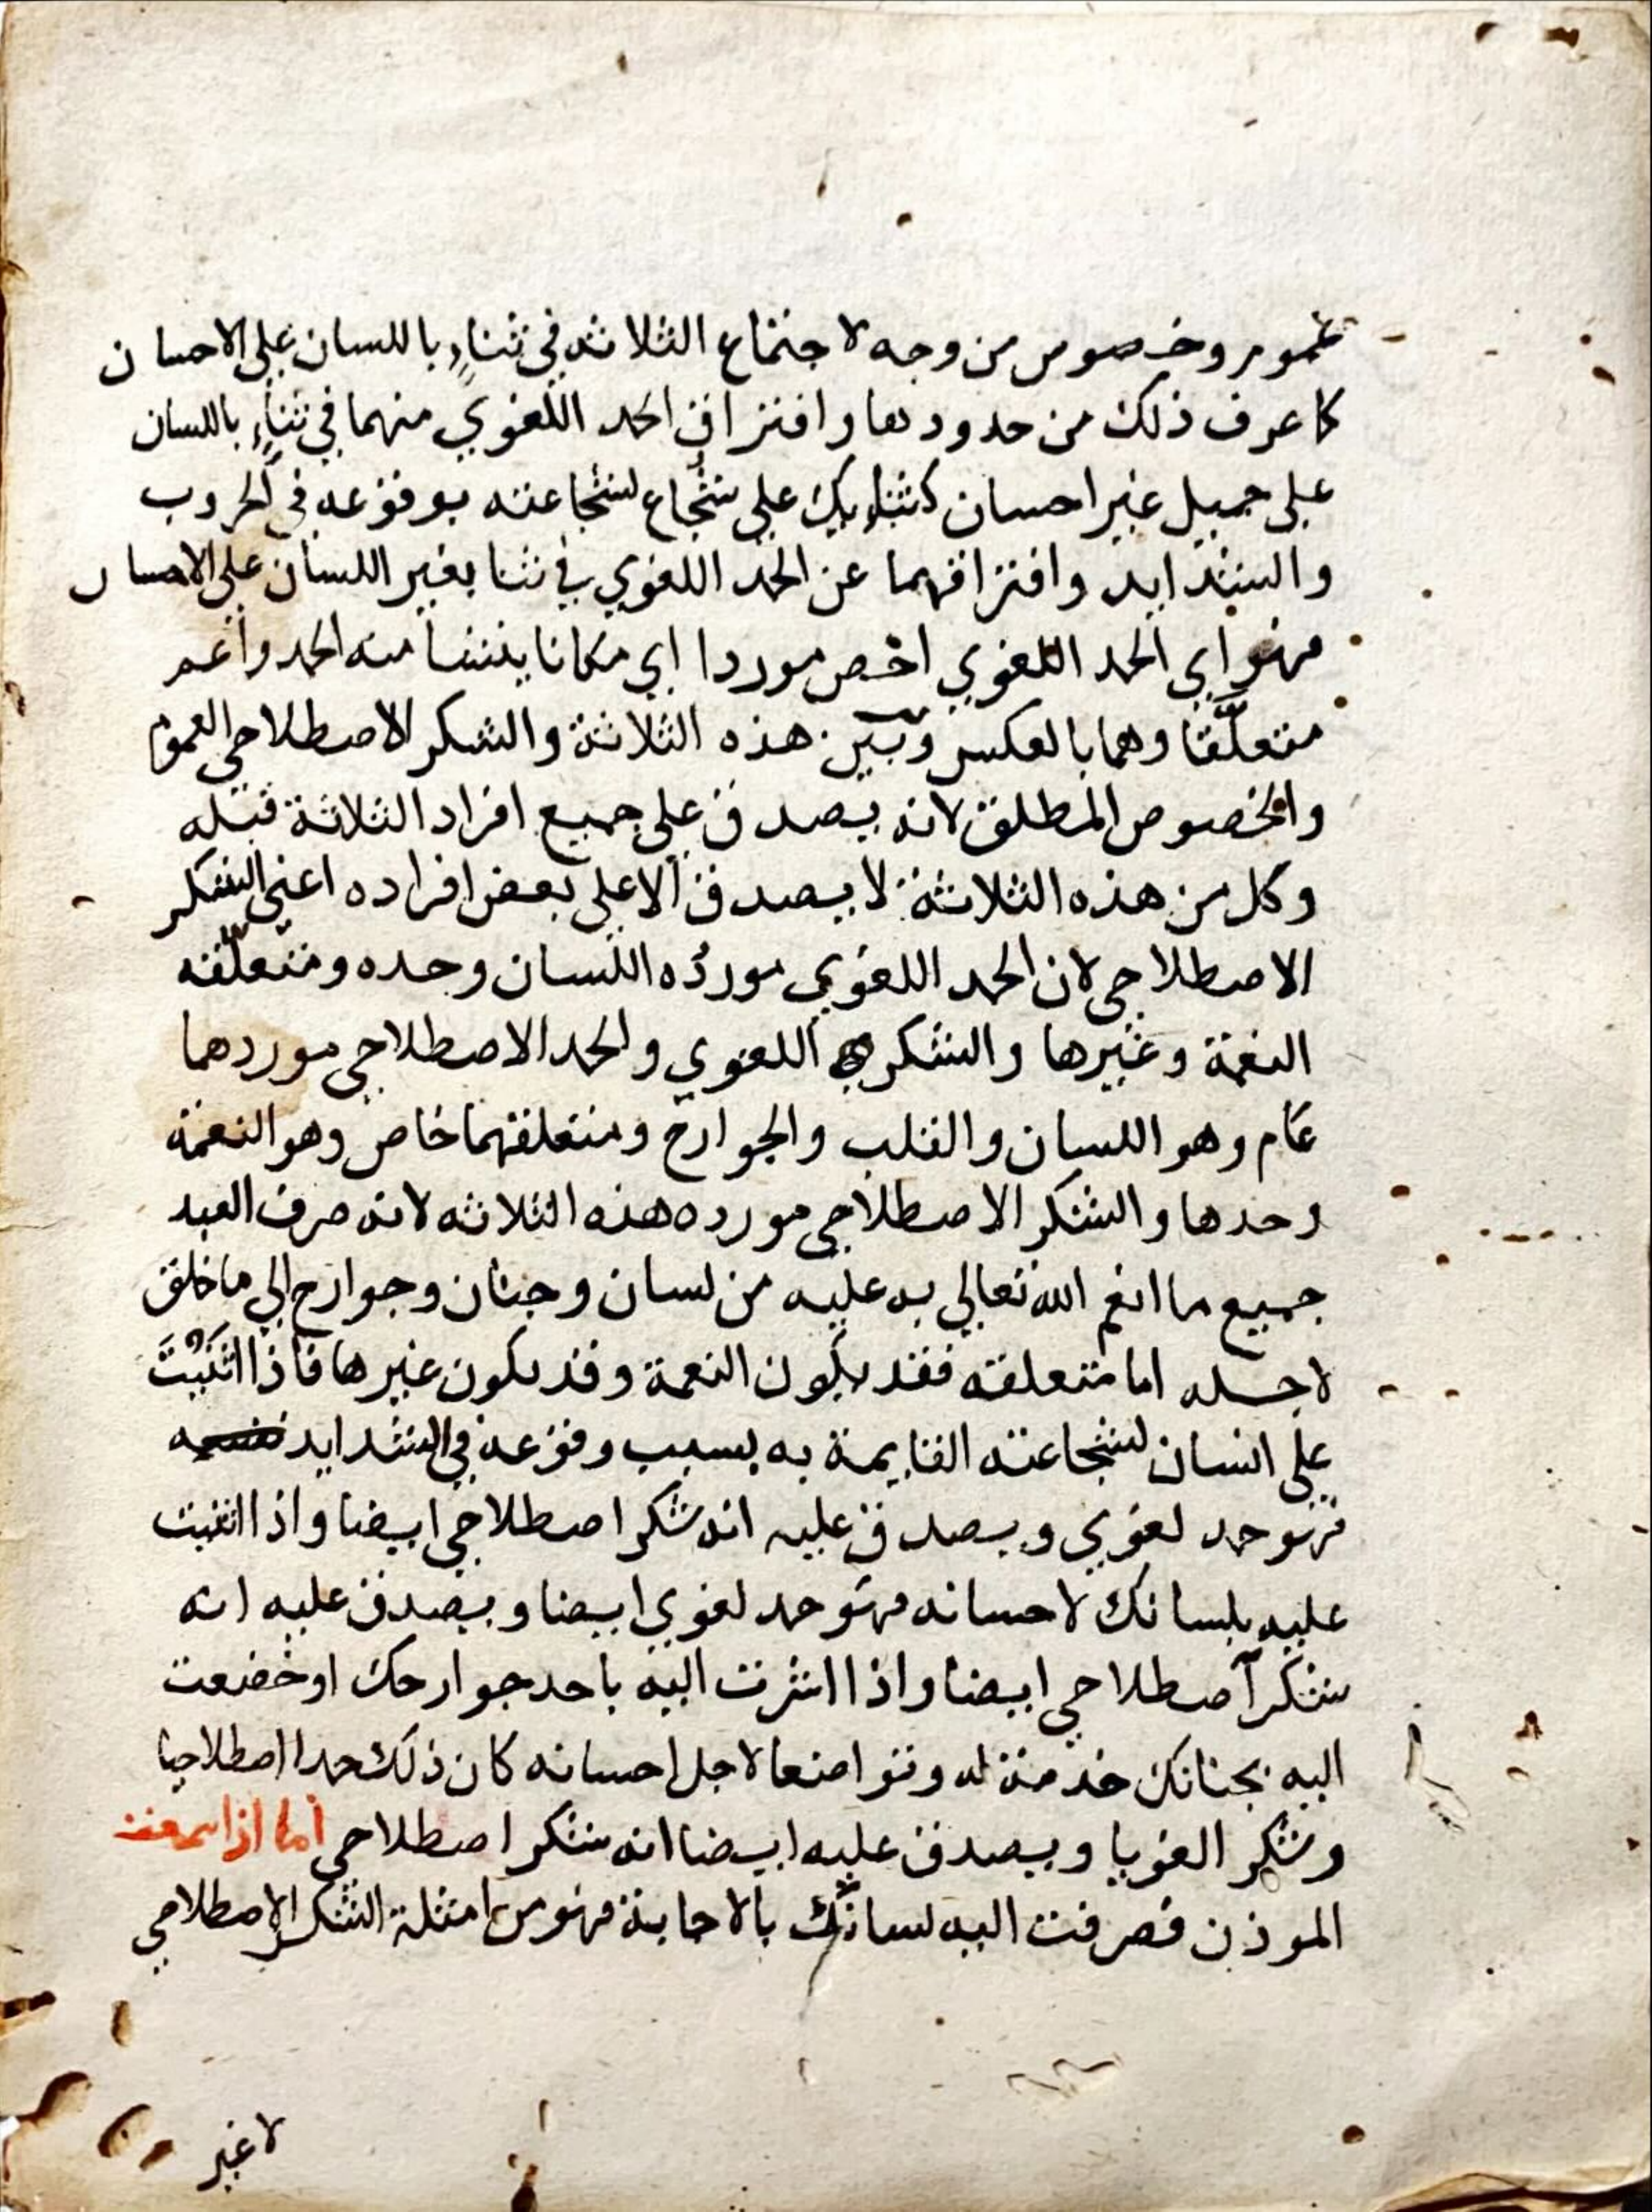 عموم وخصوص من وجه لاجتماع الثلاثه في ثناءٍ باللسان على الاحسان
كما عرف ذلك من حدودها وافتراق الحمد اللغوي منهما في ثناءٍ باللسان
على جميل غير احسان كثنايك على شجاع لشجاعته بوقوعه في الحروب
والشدايد وافتراقهما عن الحمد اللغوي في ثنا بغير اللسان على الاحسان
فهو اي الحمد اللغوي اخص موردا اي مكانا ينشا منه الحمد واعم
متعلَّقا وهما بالعكس وبَين هذه الثلاثة والشكر الاصطلاحي العموم
والخصوص المطلق لانه يصدق على جميع افراد الثلاثة قبله
وكل من هذه الثلاثة لا يصدق الا على بعض افراده اعني الشكر
الاصطلاحي لان الحمد اللغوي موردُه اللسان وحده ومتعلَّقه
النعمة وغيرها والشكر اللغوي والحمد الاصطلاحي موردهما
عام وهو اللسان والقلب والجوارح ومتعلقهما خاص وهو النعمة
وحدها والشكر الاصطلاحي مورده هذه الثلاثه لانه صرف العبد
جميع ما انعم الله تعالى به عليه من لسان وجنان وجوارح الي ما خلق
لاجله اما متعلقه فقد يكون النعمة وقد يكون غيرها فاذا اثنَيْتَ
على انسان لشجاعته القايمة به بسبب وقوعه في الشدايد
فهو حمد لغوي ويصدق عليه انه شكر اصطلاحي ايضا واذا اثنيت
عليه بلسانك لاحسانه فهو حمد لغوي ايضا ويصدق عليه انه
شكر اصطلاحي ايضا واذا اشرت اليه باحد جوارحك او خضعت
اليه بجنانك خدمة له وتواضعا لاجل احسانه كان ذلك حمدا اصطلاحيا
وشكر الغويا ويصدق عليه ايضا انه شكر اصطلاحي اما اذا سمعت
الموذن فصرفت اليه لسانك بالاجابة فهو من امثلة الشكر الاصطلاحي
لا غير